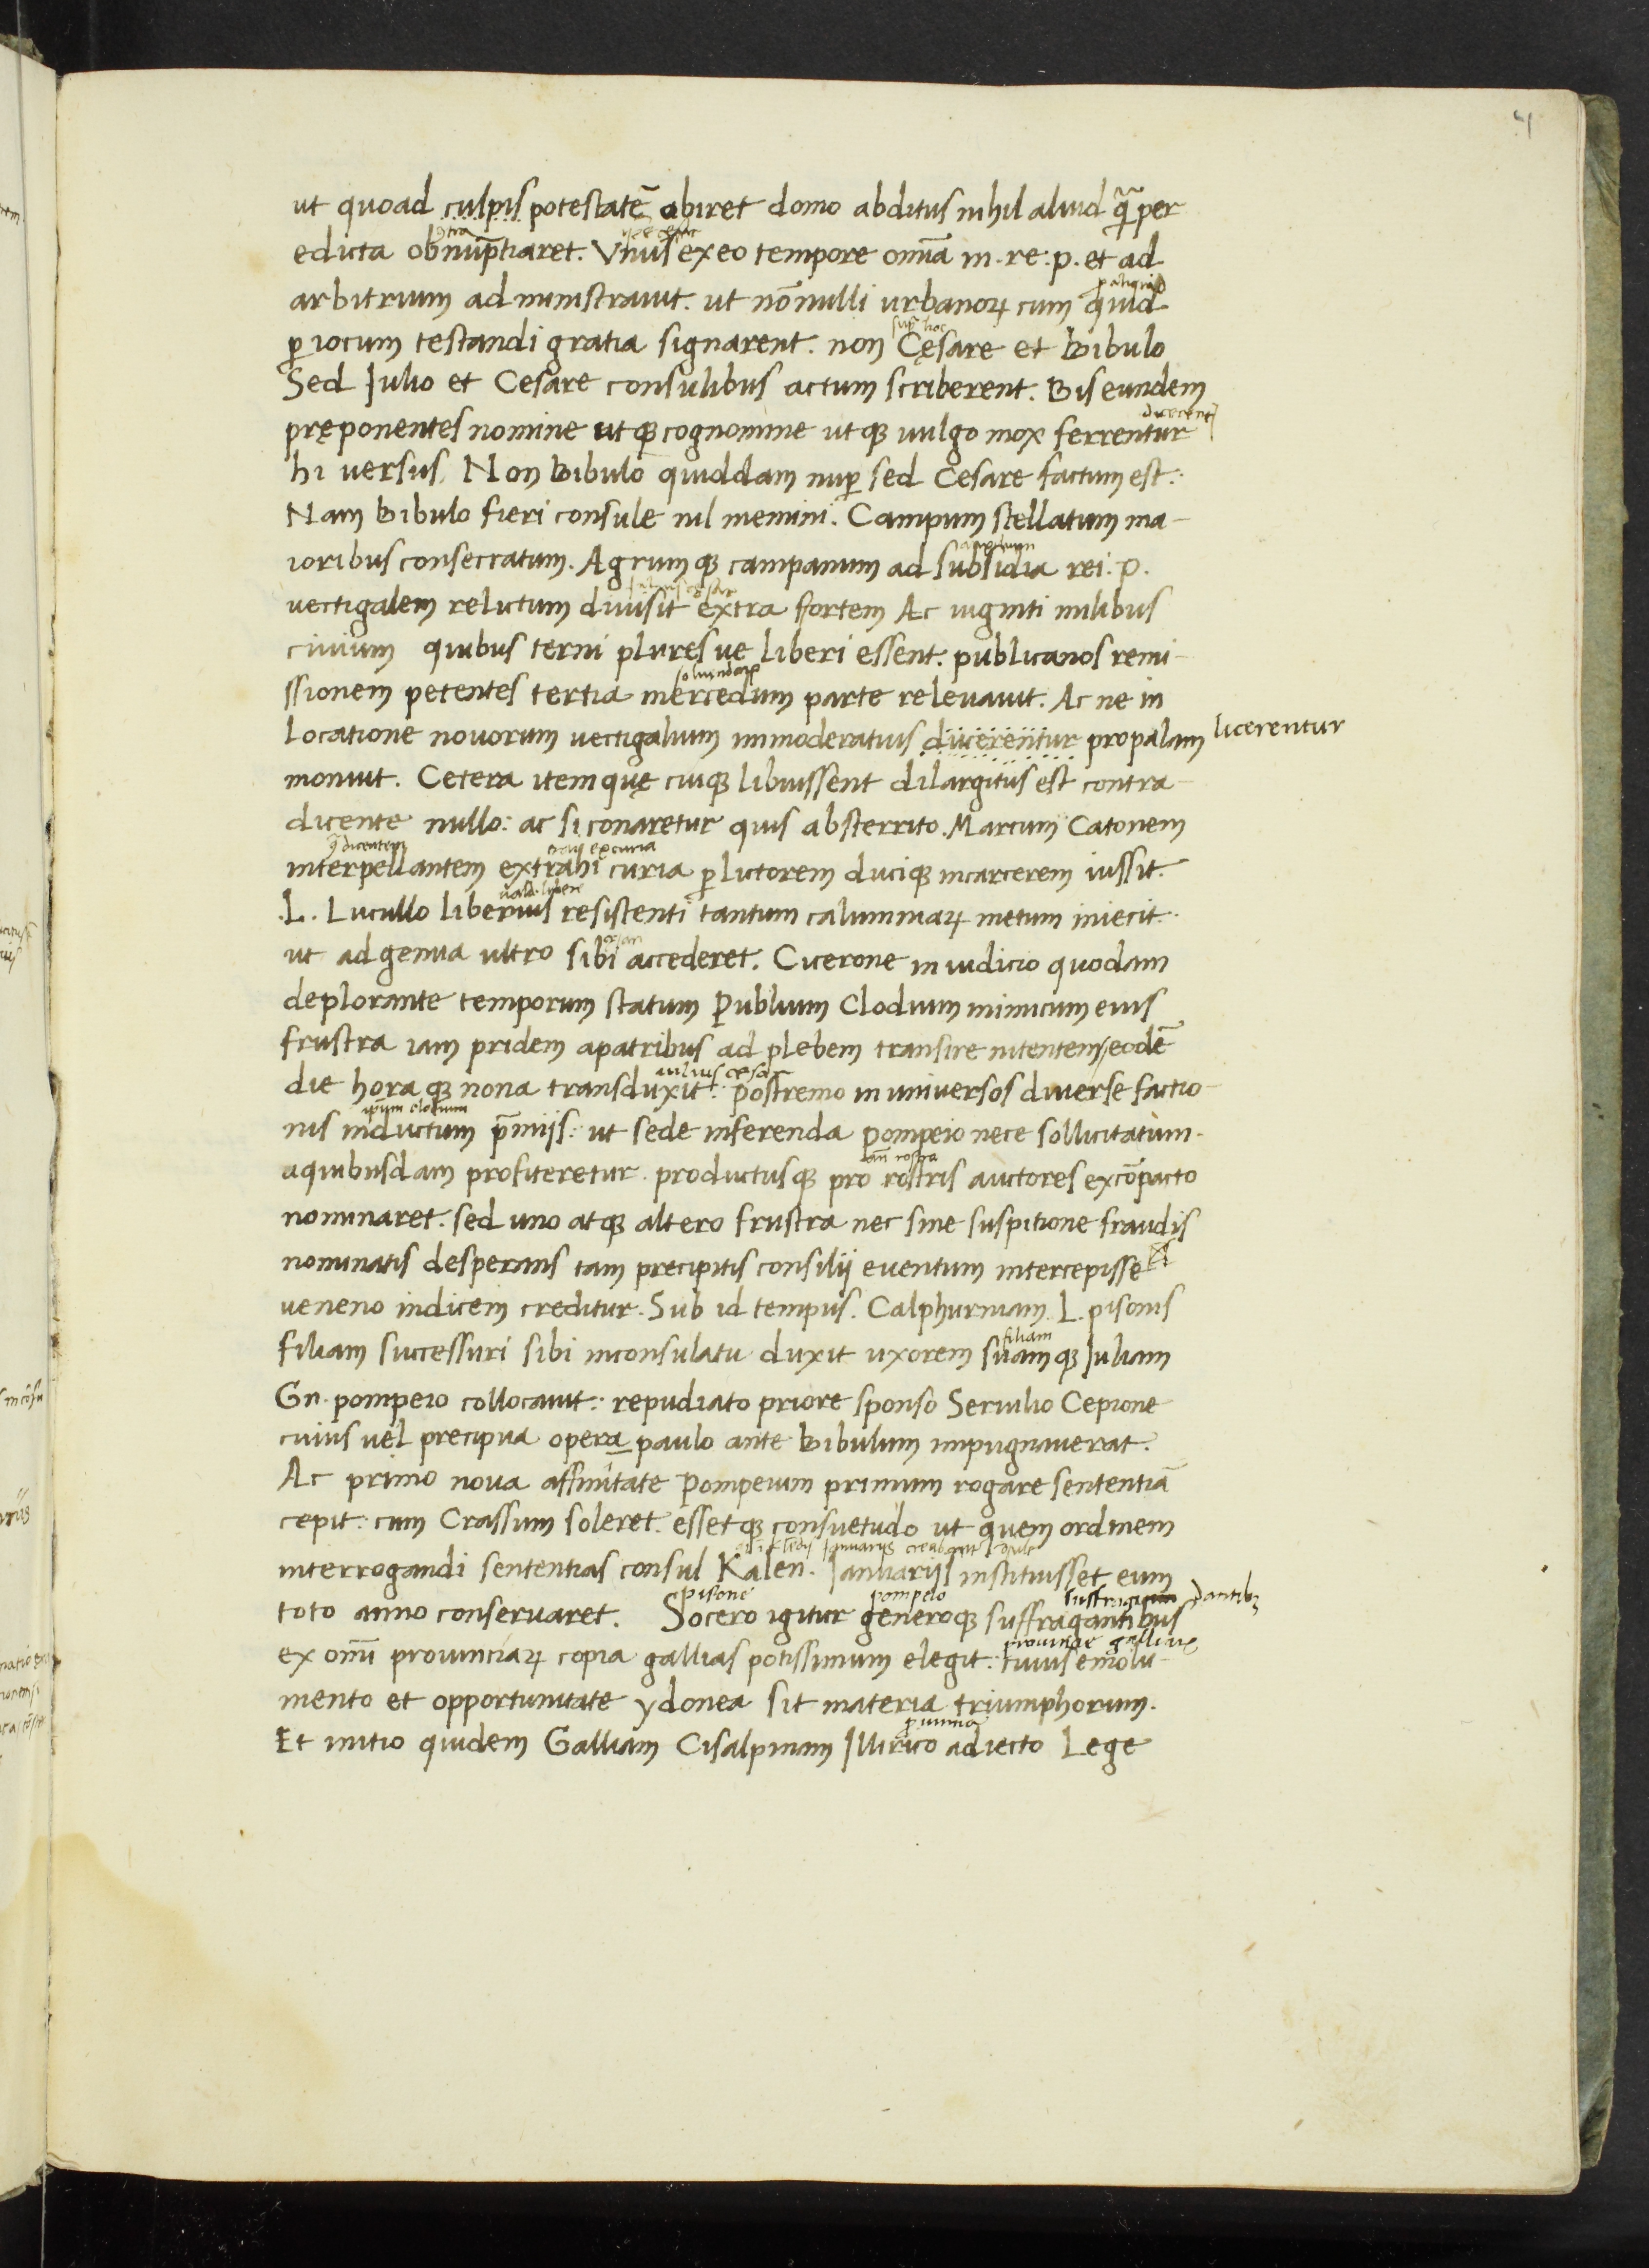 4
ut quoad culpis potestatē abiret domo abditus nihil aliud q̃ per
edicta obnuptiaret. Vnus ex eo tempore oīa in .re.p. et ad
arbitrium administrauit. ut nōnulli urbanoꝝ cum quid
ꝑ iocum testandi gratia signarent. non Cęsare et Bibulo
Sed Julio et Cesare consulibus actum scriberent. Bis eundem
dicerent
pręponentes nomine atqꝫ cognomine utqꝫ uulgo mox ferrentur
hi versus. Non Bibulo quiddam nuꝑ sed Cesare factum est:
Nam Bibulo fieri consule nil memini. Campum stellatum ma-
ioribus consecratum. Agrumqꝫ campanum ad subsidia rei.p.
vectigalem relictum diuisit extra sortem Ac uiginti milibus
ciuium quibus terni plures ue liberi essent. publicanos remi-
ssionem petentes tertia mercedum parte releuauit. Ac ne in
locatione nouorum vectigalium immoderatius ducerentur propalam licerentur
monuit. Cetera item quę cuiqꝫ libuissent dilargitus est contra-
dicente nullo: ac si conaretur quis absterrito. Marcum Catonem
interpellantem extrahi curia ꝑ lictorem duciqꝫ incarcerem iussit.
.L. Lucullo liberius resistenti tantum calumniaꝝ metum iniecit.
ut ad genua ultro sibi accederet. Cicerone in iudicio quodam
deplorante temporum statum Publium Clodium inimicum eius
frustra iam pridem apatribus ad plebem transire nitentem / eodē
iulius cesar
die horaqꝫ nona transduxit. postremo in universos diuerse factio-
ipsum clodium
nis inductum p̄mijs: ut sede inferenda pompeio nece sollicitatum.
an̄ rostra
aquibusdam profiteretur. productusqꝫ pro rostris auctores excōpacto
nominaret. sed uno atqꝫ altero frustra nec sine suspitione fraudis
nominatis desperans tam precipitis consilij euentum intercepisse
ueneno indicem creditur. Sub id tempus. Calphurniam .L. pisonis
filiam
filiam successuri sibi inconsulatu duxit uxorem suamqꝫ Juliam
Gn. pompeio collocauit: repudiato priore sponso Seruilio Cepione
cuius uel precipua opera paulo ante Bibulum impugnauerat.
Ac primo noua affinitate Pompeium primum rogare sententiā
cepit: cum Crassum soleret. essetqꝫ consuetudo ut quem ordinem
interrogandi sententias consul Kalen. Januarijs instituisset eum
pisone pompeio dantibꝫ
toto anno conseruaret. Socero igitur generoqꝫ suffragantibus
ex om̄i prouinciaꝝ copia gallias potissimum elegit: cuius emolu-
mento et opportunitate ydonea sit materia triumphorum.
Et initio quidem Galliam Cisalpinam Illirico adiecto Lege